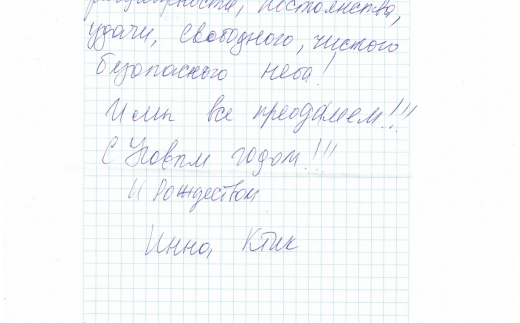 постоянства,
удачи, свободного, чистого
безопасного неба!
И мы все преодалеем!!!
С Новым годом!!!
И Рождеством
Инна